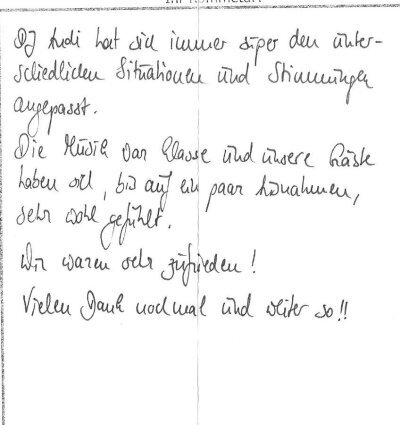 DJ Andi hat sich immer super den unter-
schiedlichen Situationen und Stimmungen
angepasst.
Die Musik war Klasse und unsere Gäste
haben sich, bis auf ein paar Ausnahmen,
sehr wohl gefühlt.
Wir waren sehr zufrieden!
Vielen Dank nochmal und weiter so!!